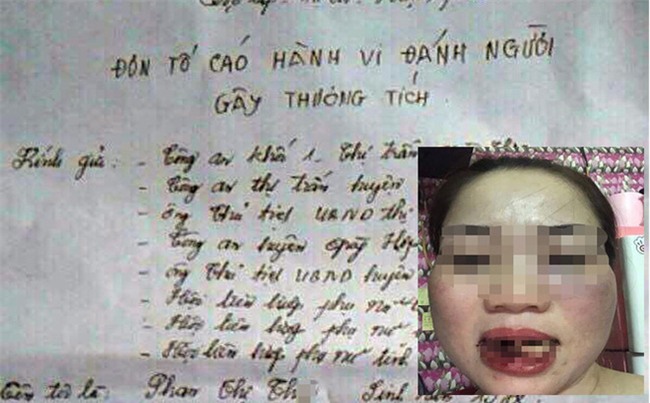 ĐƠN TỐ CÁO HÀNH VI ĐÁNH NGƯỜI
GÂY THƯƠNG TÍCH
Kính gửi: - Công an khối 1 - Thị trấn
- Công an thị trấn huyện
- Ông Chủ tịch UBND thị
- Công an huyện Quỳ Hợp
- Ông Chủ tịch UBND huyện
- Hội liên hiệp phụ nữ
- Hội liên hiệp phụ nữ
- Hội liên hiệp phụ nữ tỉnh
Tên tôi là: Phan Thị Th Sinh